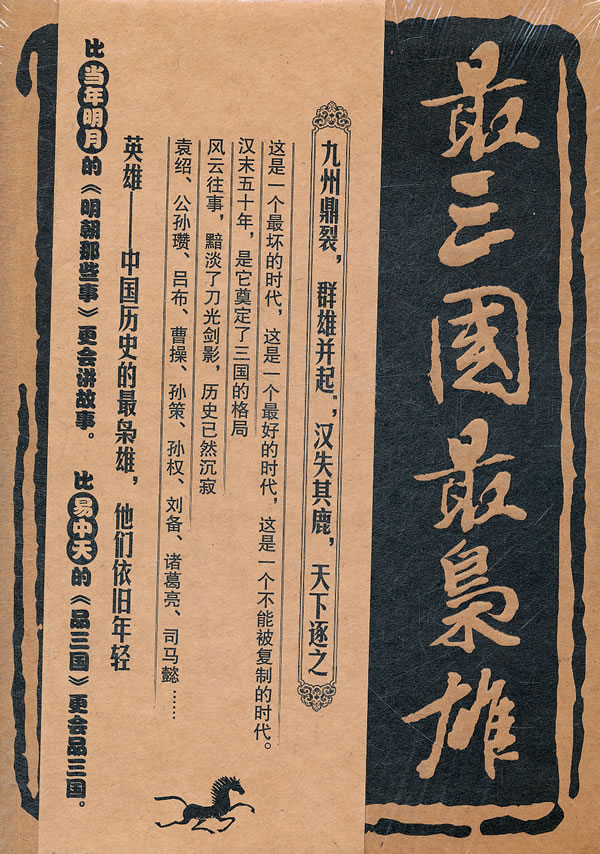 最三国最枭雄
九州鼎裂，群雄并起，汉失其鹿，天下逐之
这是一个最坏的时代，这是一个最好的时代，这是一个不能被复制的时代。
汉末五十年，是它奠定了三国的格局
风云往事，黯淡了刀光剑影，历史已然沉寂
袁绍、公孙瓒、吕布、曹操、孙策、孙权、刘备、诸葛亮、司马懿……
英雄——中国历史的最枭雄，他们依旧年轻
比当年明月的《明朝那些事》更会讲故事。比易中天的《品三国》更会品三国。